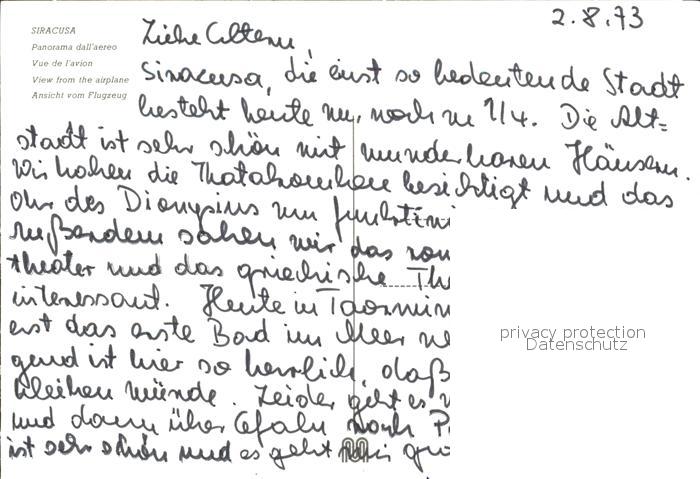 2.8.73
SIRACUSA
Panorama dall'aereo
Vue de l'avion
View from the airplane
Ansicht vom Flugzeug
Liebe Eltern,
Siracusa, die einst so bedeutende Stadt
besteht heute nur noch zu 1/4. Die Alt=
stadt ist sehr schön mit wunderbaren Häusern.
Wir haben die Katakomben besichtigt und das
Ohr des Dionysius
Außerdem sahen wir das röm
theater und das griechische Th
interessant. Heute in Taormin
erst das erste Bad im Meer
gend ist hier so herrlich, daß
bleiben würde. Leider geht es
und dann über Cefalu nach P
ist sehr schön und es geht
privacy protection
Datenschutz